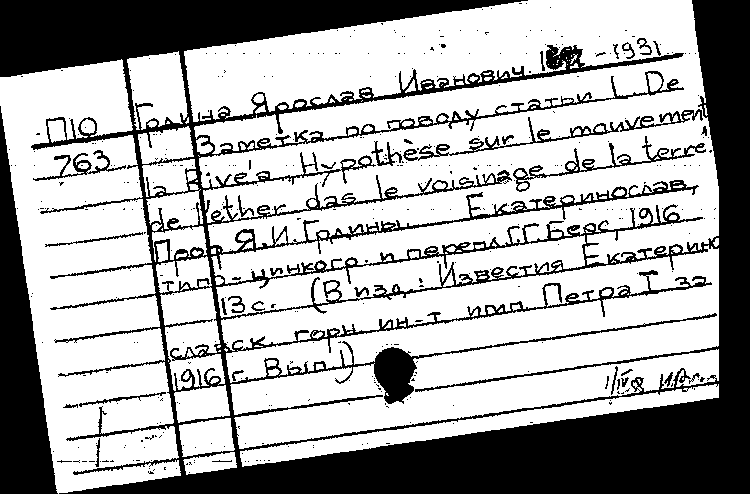 П10
763
Грдина Ярослав Иванович. - 1931
Заметка по поводу статьи L. De
la Rive'а „Hypothèse sur le mouvement
de l'ether das le voisinage de la terre".
Проф. Я.И. Грдины. Екатеринослав,
типо-цинкогр. и перепл. Г.Г. Берс, 1916
13 с. (В изд.: Известия Екатерино
славск. горн ин-т имп Петра I за
1916 г. Вып 1)